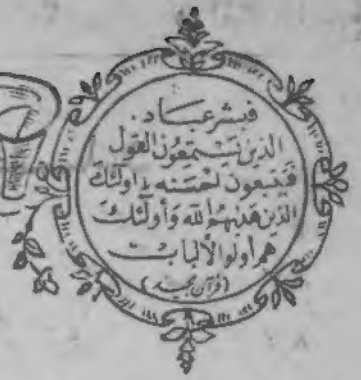 فبشر عباد.
الذين يستمعون القول
فيتبعون احسنه، اولئك
الذين هديهم الله وأولئك
هم اولوا الألباب
(قرآن مجيد)